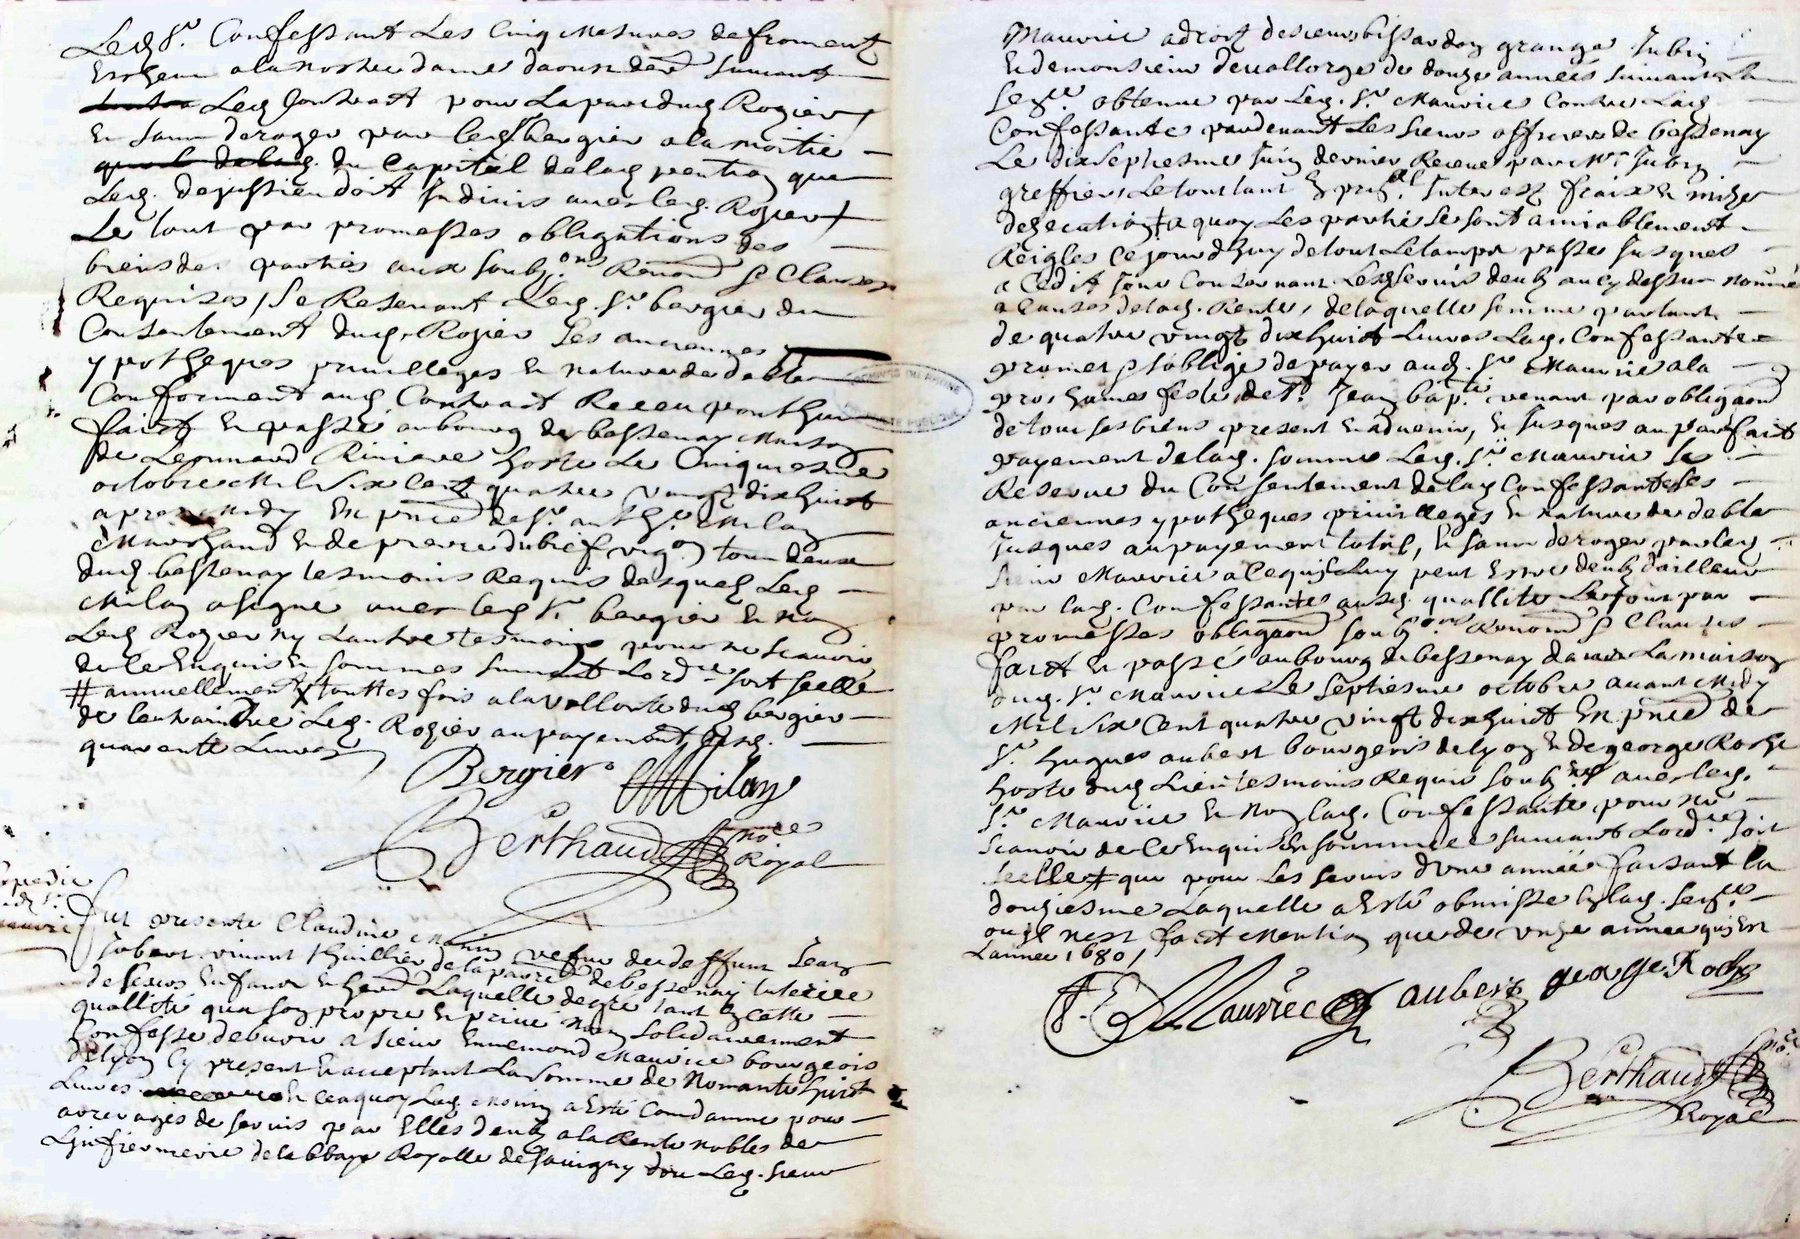 Led Sr. Confessant Les Cinq mesures de froment
Escheu a la nostre dame daoust dernr suivant
Led Contract pour La part dud Rozier
Et sans deroger par led Sr bergier a la moitié
du Capital de lad pention que
Led. dejussieu doit Indivis avec led. Rozier
Le tout par promesses obligations des
biens des parties aux soubons Renond & Clauses
Requises / Se Reservant Led. Sr bergier du
Consentement dud. Rozier Les anciennes
ypotheques privilleges et nature de debte
Conforment aud Contract Receu
faict Et passé au bourg de bessenay Maison
de Leonnard Riviere hoste Le Cinquiesme
octobre Mil Six Cent quatre vingt dix huict
apres Midy En pnce de Sr. anthe. Milan
Marchand Et de pierre dubief vigon tous deux
dud bessenay tesmoins Requis desquels Led
Milan a signe avec led Sr bergier Et non
Led Rozier ny Lautre tesmoing pour ne scavoir
de ce Enquis Et sommes suivant Lordce soit scellé
# annuellement X touttes fois a la vollonte dud bergier
de Contraindre Led. Rozier au payement desd.
quarente Livres
Bergier Milan
Berthaud nore
Royal
Expedié
aud Sr.
Mauvrice
fut presente Claudine Monin vefve de deffunt Jean
Jobert vivant thaillier de la parre de bessenay tutrice
de Leurs Enfans Et herd Laquelle de gre tant En cette
quallité qua son propre Et privé nom solidairement
Confesse debvoir a sieur Ennemond Mauvrice bourgeois
de Lyon Cy present Et acceptant La somme de Nonante huict
Livres En Ceaquoy Lad. Monin a Esté Condamne pour
arreyages de servis par Elles deub a la Rente nobles de
Linfirmerie de Labbaye Royalle de Savigny dou Led. Sieur
Mauvrice a droit de sieurs bissardon grange Jubin
Et de monsieur de vallorge de douze années suivant La
Sence. obtenue par Led. Sr Mauvrice Contre Lad
Confessante pardevant Les Sieurs officiers de bessenay
Le dixseptiesme Juin dernier Receue par Mr Jubin
greffier, Le tout tant En prinal. Interest fraix Et mizes
dexecution + a quoy Les parties se sont amiablement
Reigles Ce jourdhuy de tout Le temps passé Jusques
a Cedit Jour Concernant Lesd servis deub au cy dessus nommé
a Causes de lad. Rente, de laquelle somme partant
de quatre vingt dix huict Livres Lad. Confessante
promet & soblige de payer aud. Sr Mauvrice a la
prochaines feste de St Jean baptte venant par obligaon
de tous ses biens present Et advenir, Et Jusques au parfaict
payement de lad. somme Led. Sr Mauvrice se
Reserve du Consentement de lad Confessante Les
anciennes ypotheques privilleges Et nature de debte
Jusques au payement total, Et sans deroger par led
Sieur Mauvrice a Ce quil Luy peut Estre deub dailleurs
par lad. Confessante ausd. quallite Le tout par
promesses obligaons soubons Renond & Clauses
faict Et passé au bourg de bessenay dans La maison
dud. Sr Mauvrice Le Septiesme octobre avant Midy
Mil Six Cent quatre vingt dix huict En pnce de
Sr. hugues aubert bourgeois de Lyon Et de george Roche
hoste dud Lieu tesmoins Requis soubnes avec led.
Sr Mauvrice Et non lad. Confessante pour ne
scavoir de Ce Enquis Et sommee suivant Lordce soit
scellé # que pour Les servis dune année faisant la
douziesme Laquelle a Esté obmisse En lad. sence
ou Il nest faict Mention que de unze annee quj Est
Lannee 1680 /
E. Mauvrice aubert george Roche
Berthaud nore
Royal